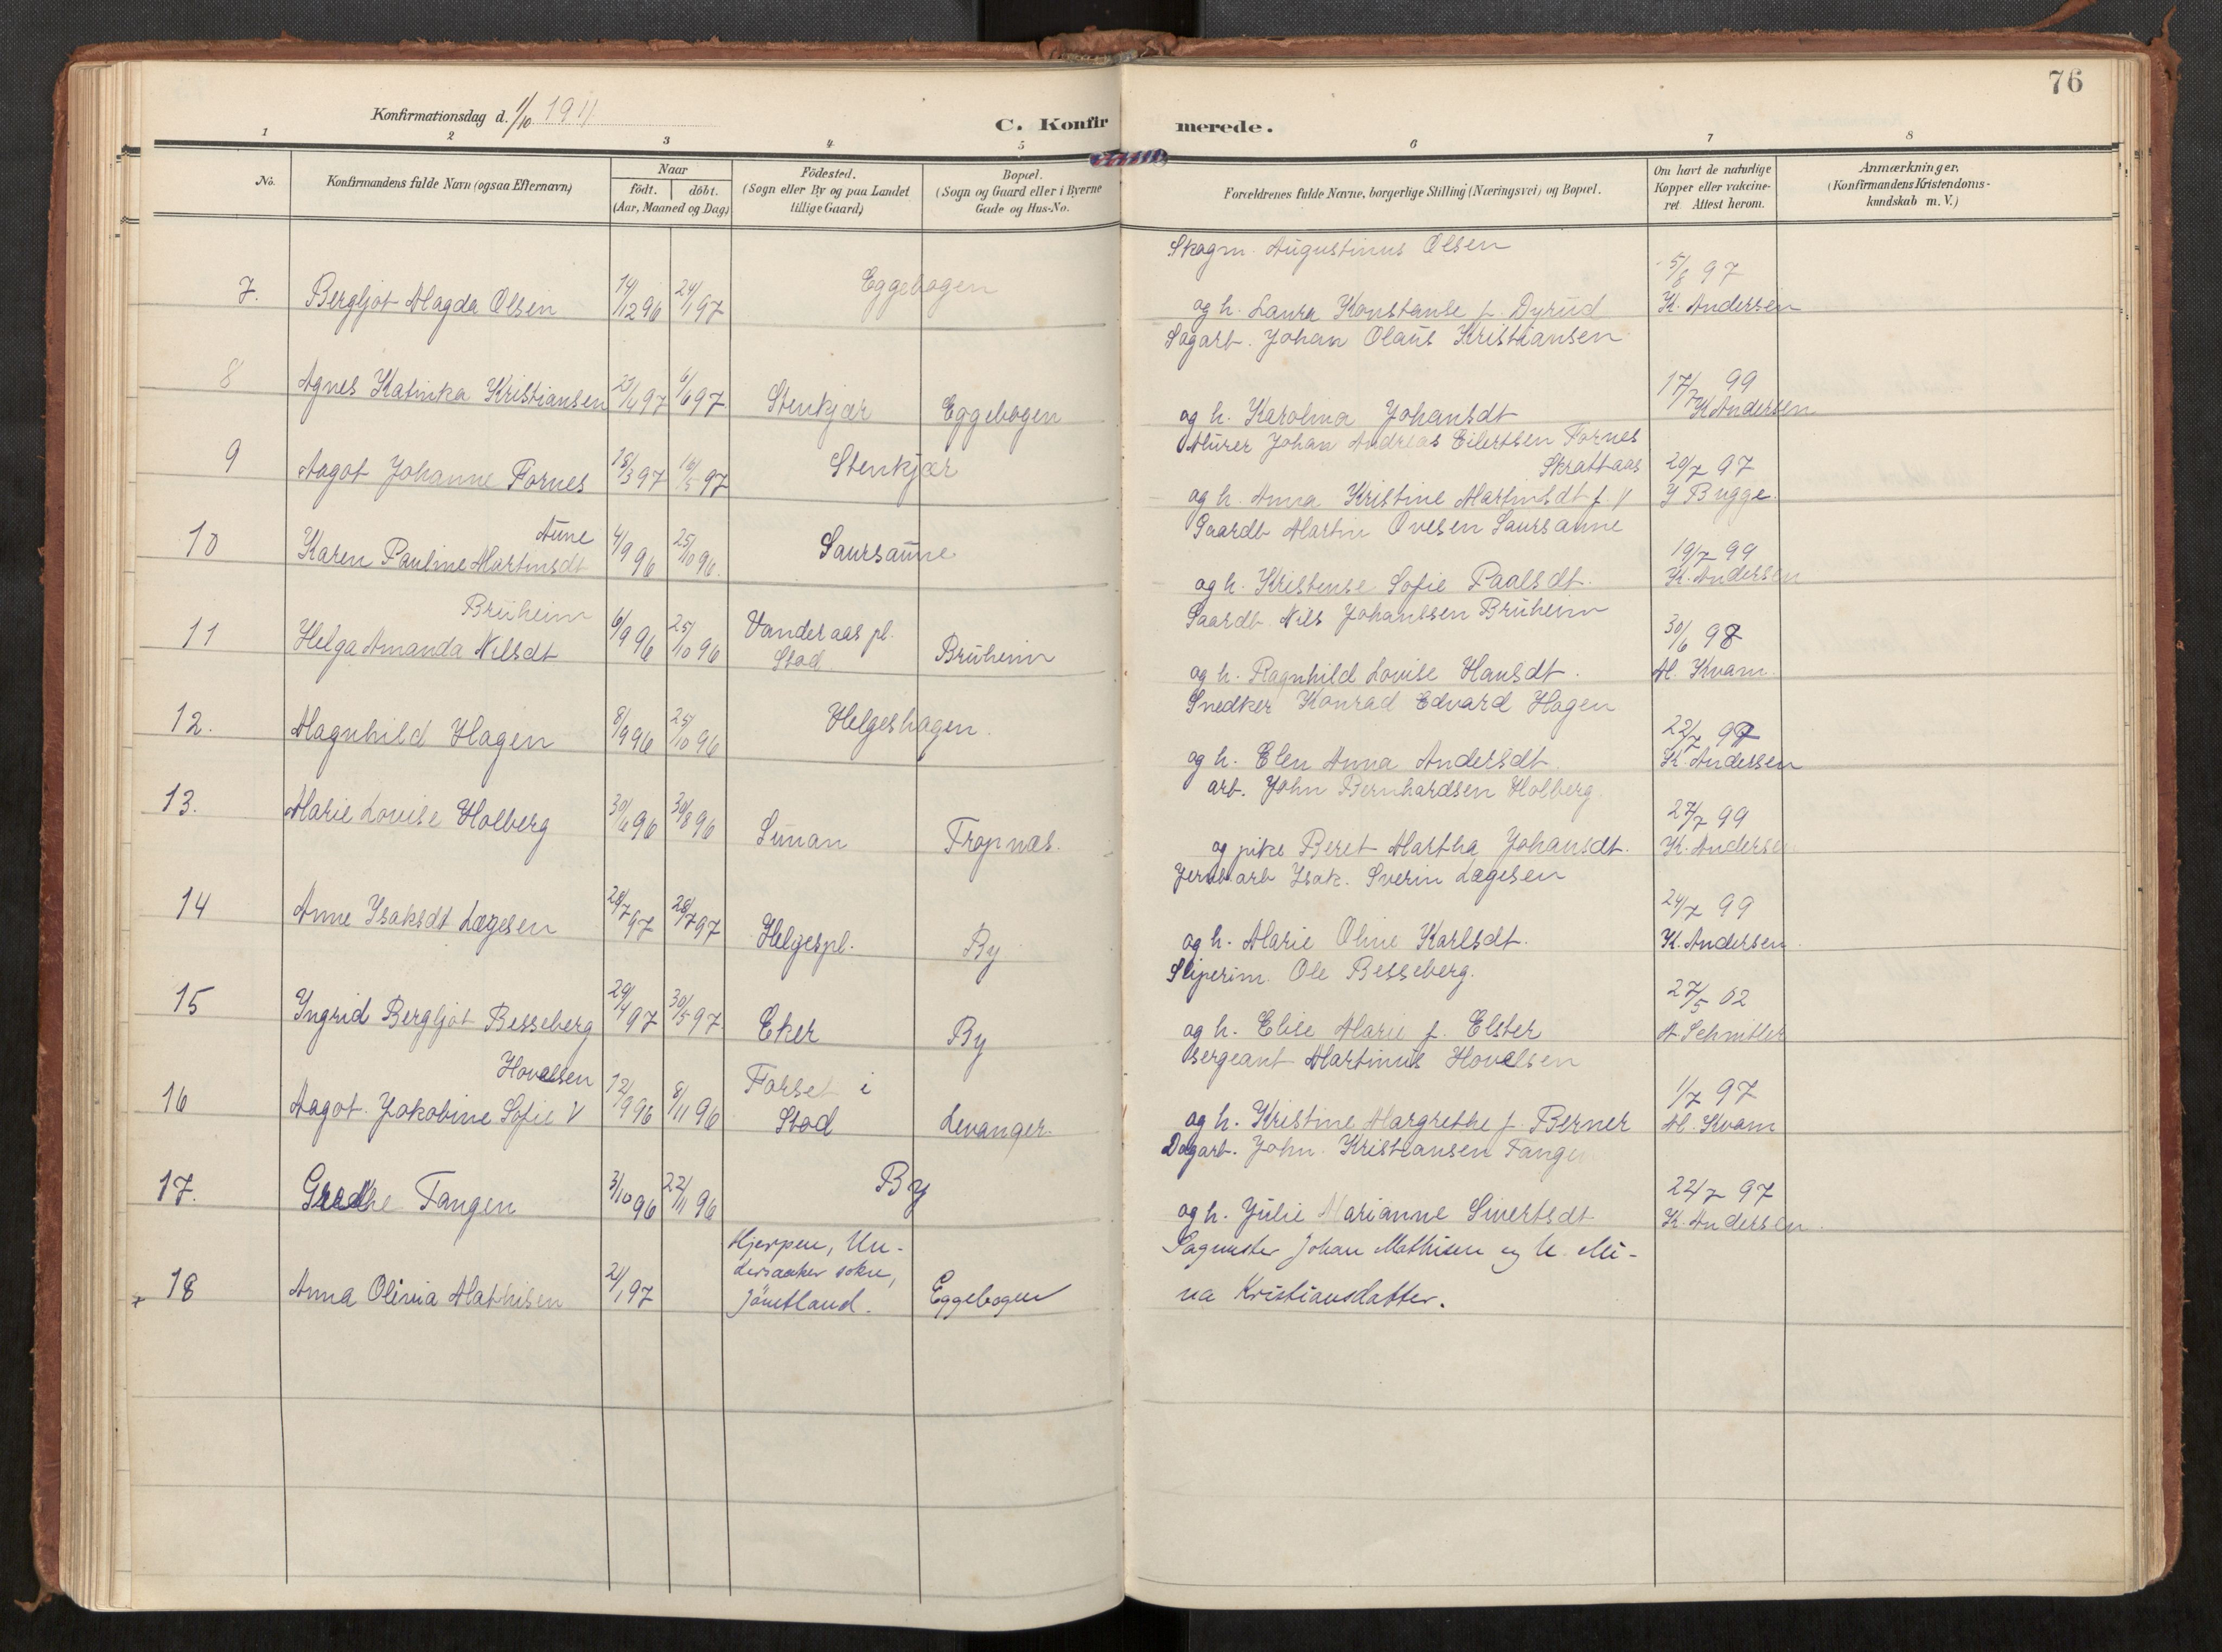 76
Konfirmationsdag d. 1/10 1911
C. Konfirmerede.
1 2 3 4 5 6 7 8
No.
Konfirmandens fulde Navn (ogsaa Efternavn)
Naar
födt. döbt.
(Aar, Maaned og Dag)
Födested.
(Sogn eller By og paa Landet
tillige Gaard)
Bopæl.
(Sogn og Gaard eller i Byerne
Gade og Hus-No.
Forældrenes fulde Navne, borgerlige Stilling (Næringsvei) og Bopæl.
Om havt de naturlige
Kopper eller vakcine-
ret. Attest herom.
Anmærkninger.
(Konfirmandens Kristendoms-
kundskab m. V.)
Skogm. Augustinus Olsen
7. Bergljot Magda Olsen 14/12 96 24/1 97 Eggebogen
og h. Laura Konstanse f. Dyrud
5/8 97
K. Andersen
Sagarb. Johan Olaus Kristiansen
8 Agnes Katinka Kristiansen 23/4 97 6/6 97 Stenkjær Eggebogen
og h. Karolina Johansdt
17/7 99
K Andersen
Murer Johan Andreas Eilertsen Fornes
Skrattaas
9 Aagot Johanne Fornes 18/3 97 16/5 97 Stenkjær
og h. Anna Kristine Martinsdt f. V
20/7 97
J Bugge.
Gaardb Martin Ovesen Saursaune
Aune
10 Karen Pauline Martinsdt 4/9 96 25/10 96. Saursaune
og h. Kristense Sofie Paalsdt.
19/7 99
K. Andersen
Gaardb. Nils Johansen Bruheim
Bruheim
11 Helga Amanda Nilsdt 6/9 96 25/10 96 Vanderaas pl.
Stod. Bruheim
og h. Ragnhild Lovise Hansdt.
30/6 98
M. Kvam.
Snedker Konrad Edvard Hagen
12. Magnhild Hagen 8/9 96 25/10 96 Helgeshagen.
og h. Elen Anna Andersdt.
22/7 97
K. Andersen
arb. John Bernhardsen Holberg.
13. Marie Lovise Holberg 30/6 96 30/8 96 Sunan Fropnæs.
og pike Beret Martha Johansdt.
27/7 99
K. Andersen
Jernb. arb Isak. Sverin Lægesen
14 Anne Isaksdt Lægesen 28/7 97 Helgespl. By
og h. Marie Oline Karlsdt.
24/7 99
K. Andersen.
Sliperim. Ole Besseberg.
15 Ingrid Bergljot Besseberg 29/4 97 30/5 97 Eker By
og h. Elise Marie f. Elster
27/5 02
A. Schmitler
Sergeant Martinus Hovelsen
Hovelsen
16 Aagot. Jakobine Sofie V 12/9 96 8/11 96 Forset i
Stod Levanger.
og h. Kristine Margrethe f. Berner
1/7 97
M. Kvam
Dagarb. John. Kristiansen Tangen
17. Grethe Tangen 3/10 96 22/11 96 By
og h. Julie Marianne Sivertsdt
22/7 97
K. Andersen.
Hjerpen, Un-
dersaaker sokn,
Jämtland.
+ 18 Anna Olivia Mathisen 21/1 97 Eggebogen
Sagmester Johan Mathisen og h. Mi-
na Kristiansdatter.